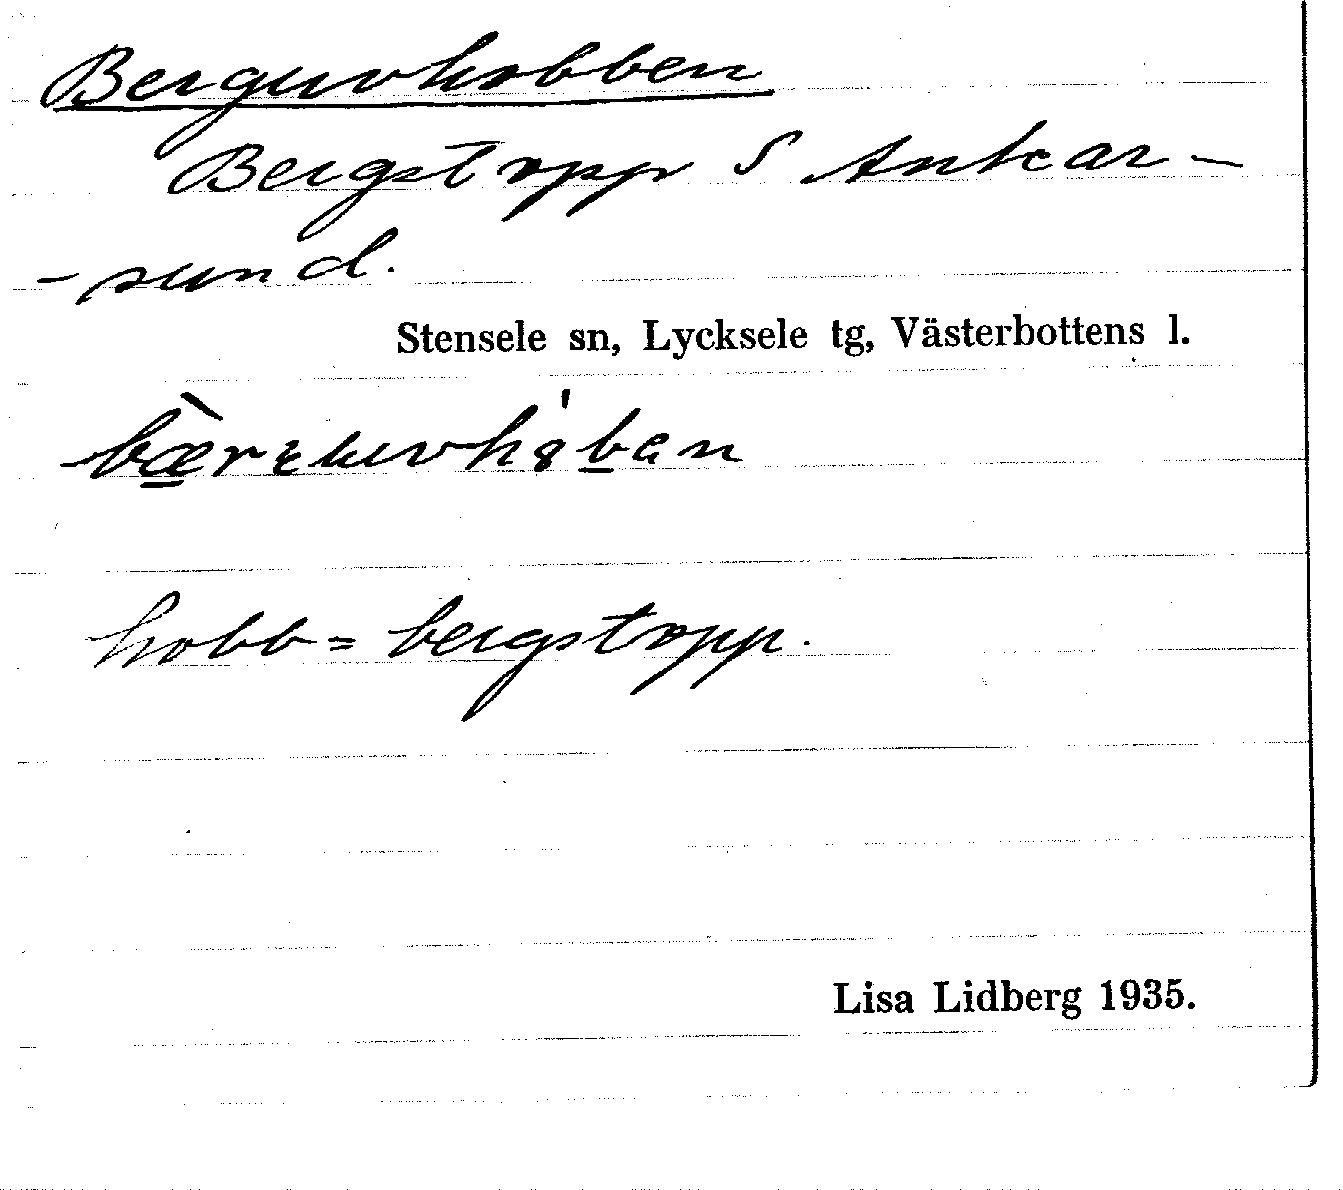 Berguvhobben
Bergstopp S Ankar-
-sund.
Stensele sn, Lycksele tg, Västerbottens l.
hobb = bergstopp.
Lisa Lidberg 1935.